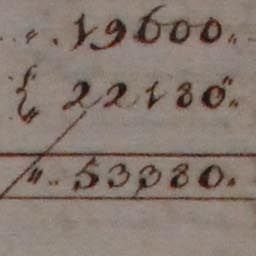 19600
22180
53380